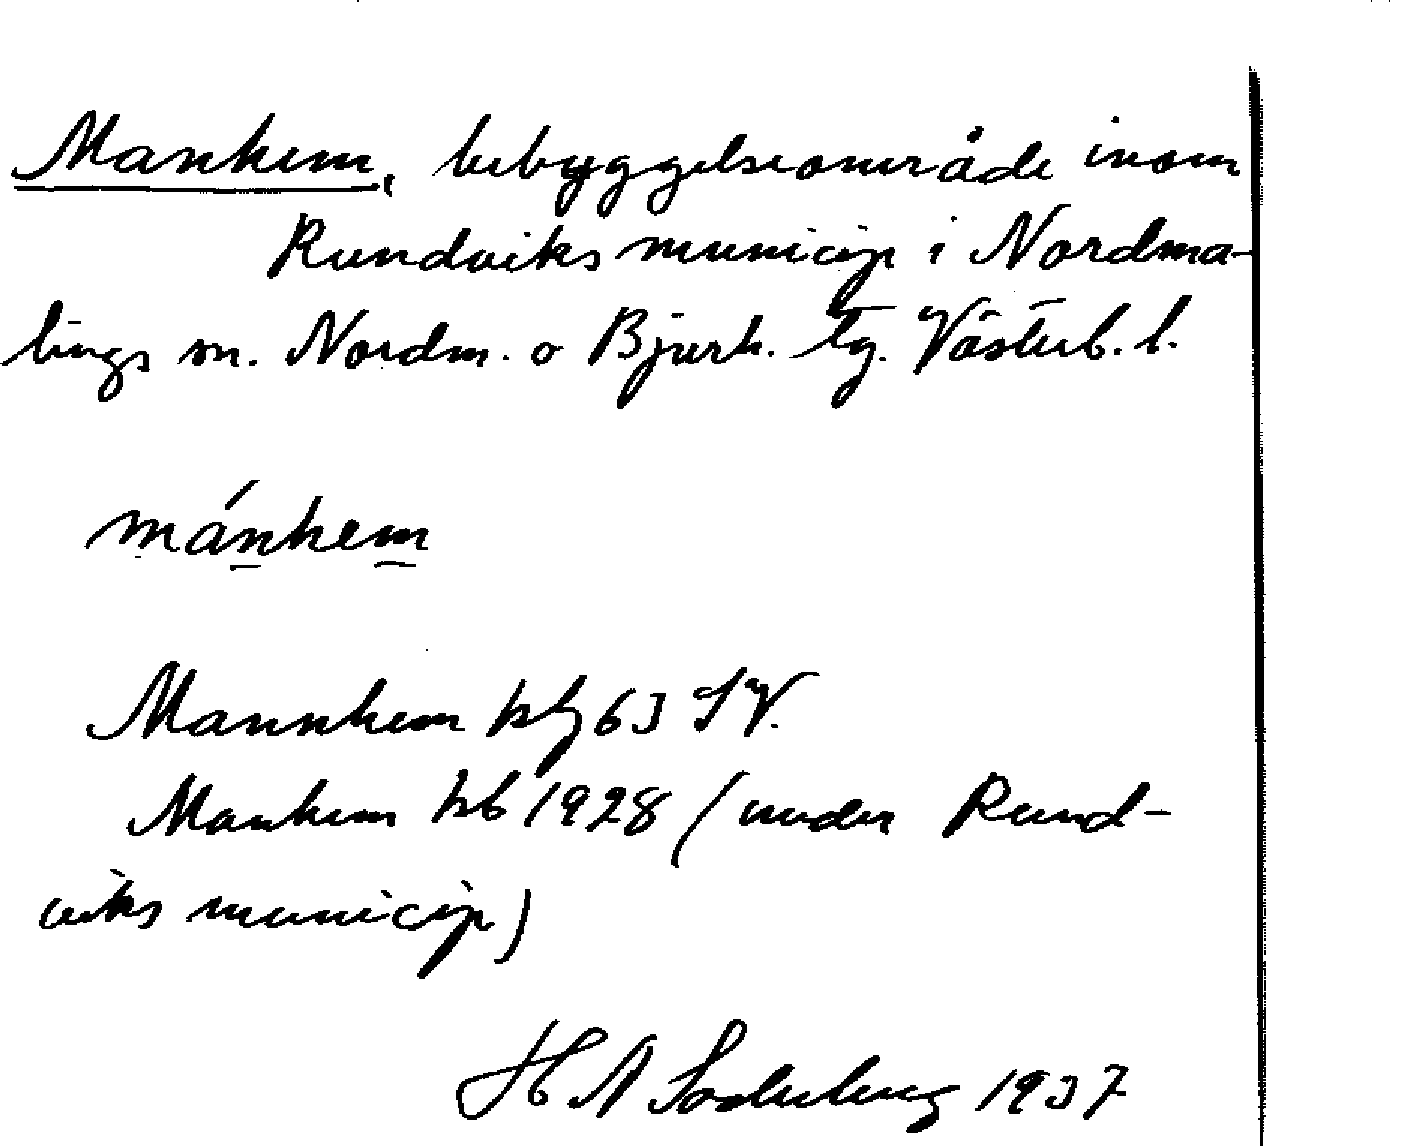 Manhem, bebyggelseområde inom
Rundviks municip i Nordma-
lings sn. Nordm. o Bjurh. tg. Västerb. l.
mánhem
Mannhem kbl 63 SV.
Manhem kb 1928 (under Rund-
viks municip)
H A Söderberg 1937